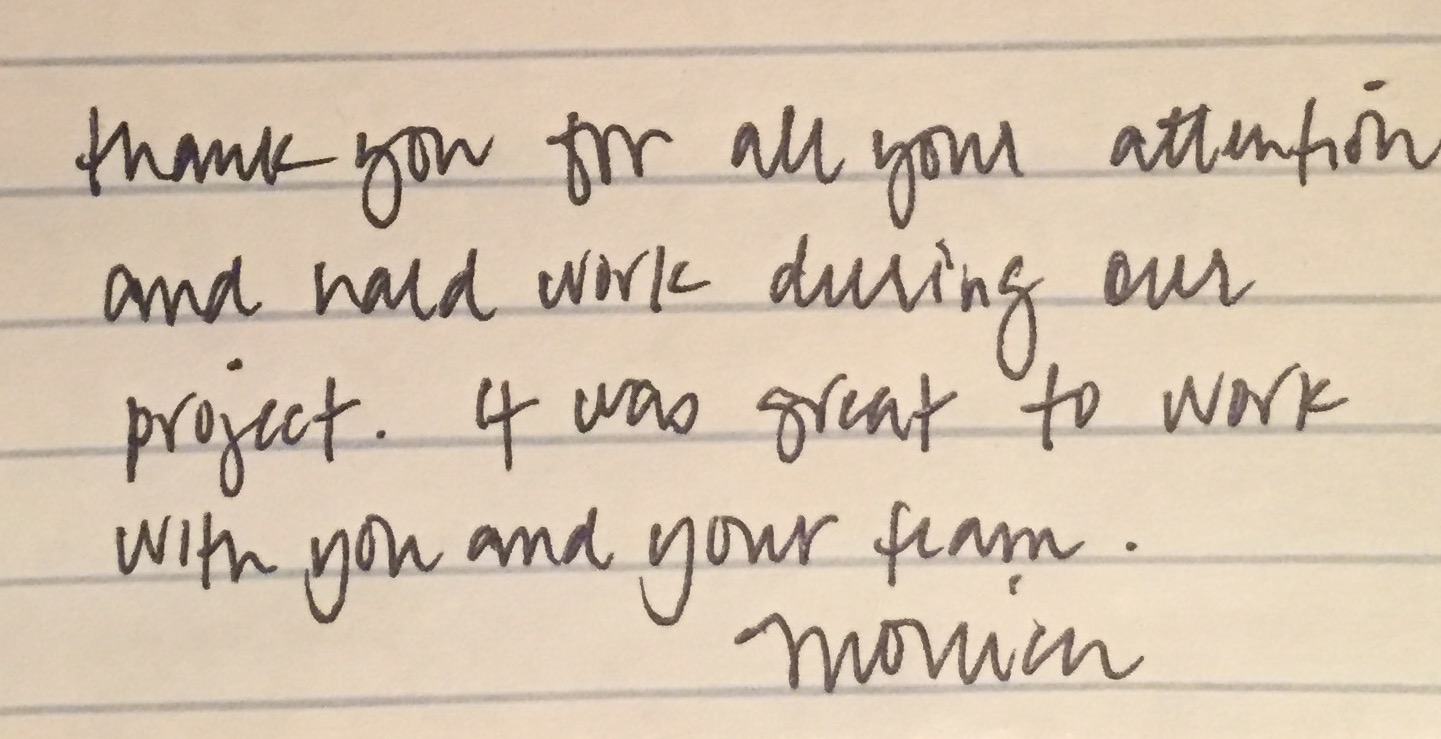 thank you for all your attention
and hard work during our
project. It was great to work
with you and your team.
Monica